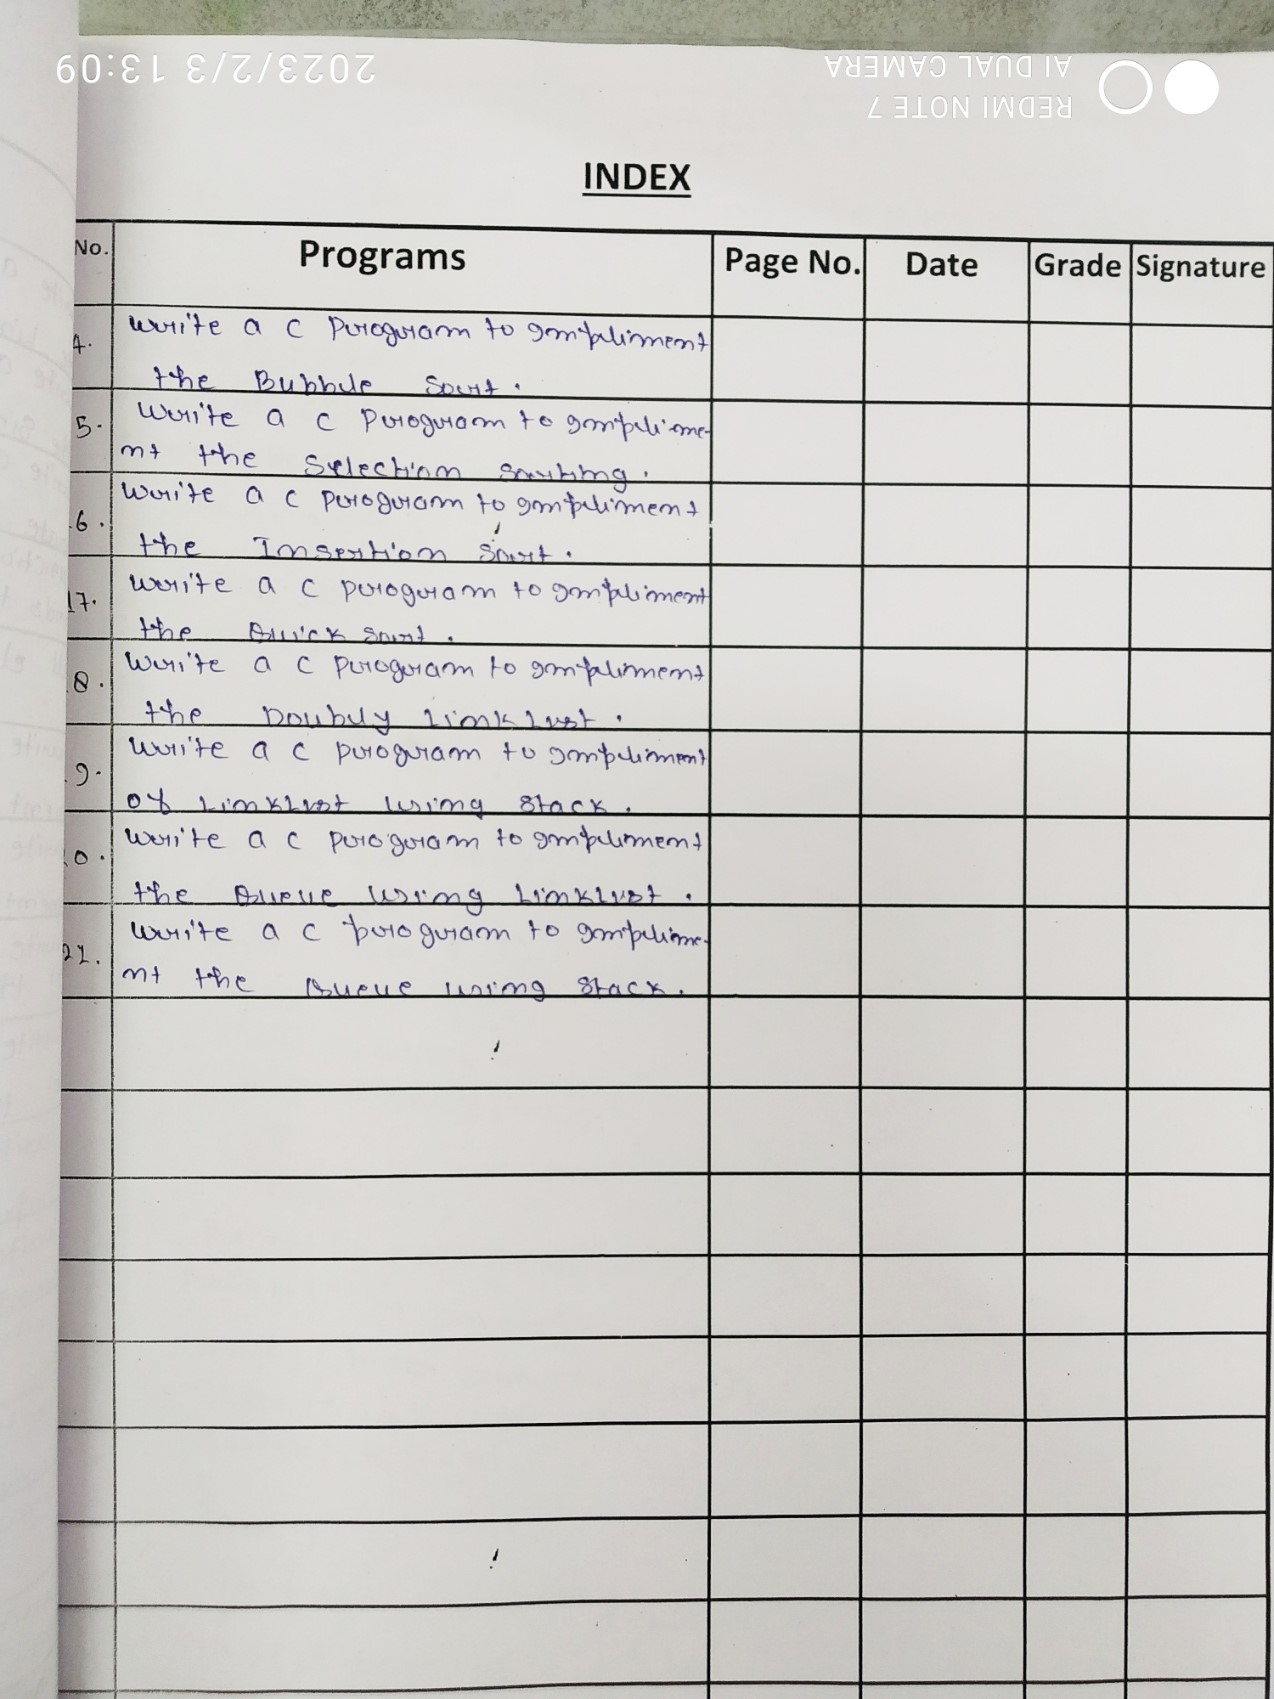 2023/2/3 13:09
REDMI NOTE 7
AI DUAL CAMERA
INDEX
No. Programs Page No. Date Grade Signature
4. Write a C Program to Impliment
the Bubble Sort.
5. Write a C Program to Implime-
nt the Selection Sorting.
6. Write a C Program to Impliment
the Insertion Sort.
17. Write a C program to Impliment
the Quick Sort.
8. Write a C Program to Impliment
the Doubly Link List.
9. Write a C program to Impliment
of LinkList using Stack.
0. Write a C program to Impliment
the Queue Using LinkList.
21. Write a C program to Implime-
nt the Queue using Stack.